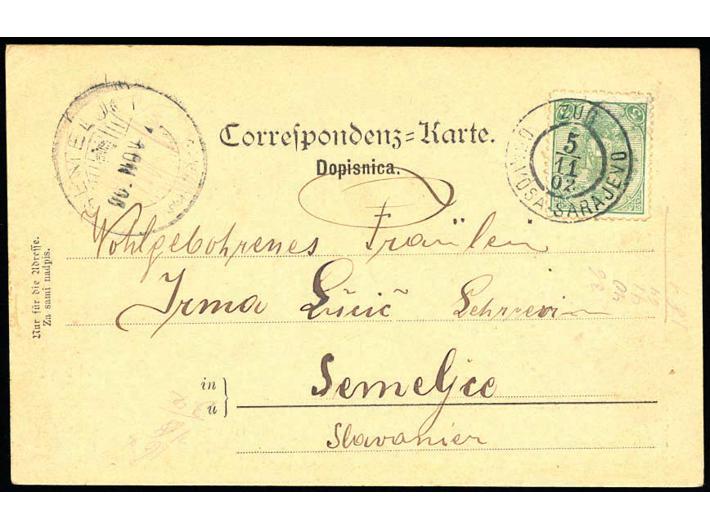 Correspondenz=Karte.
Dopisnica.
ZUG
5
11
02
SARAJEVO
Nur für die Adresse.
Za sami nadpis.
Wohlgebohrenes Fräulein
Irma
in
u
Semeljce
Slavonien